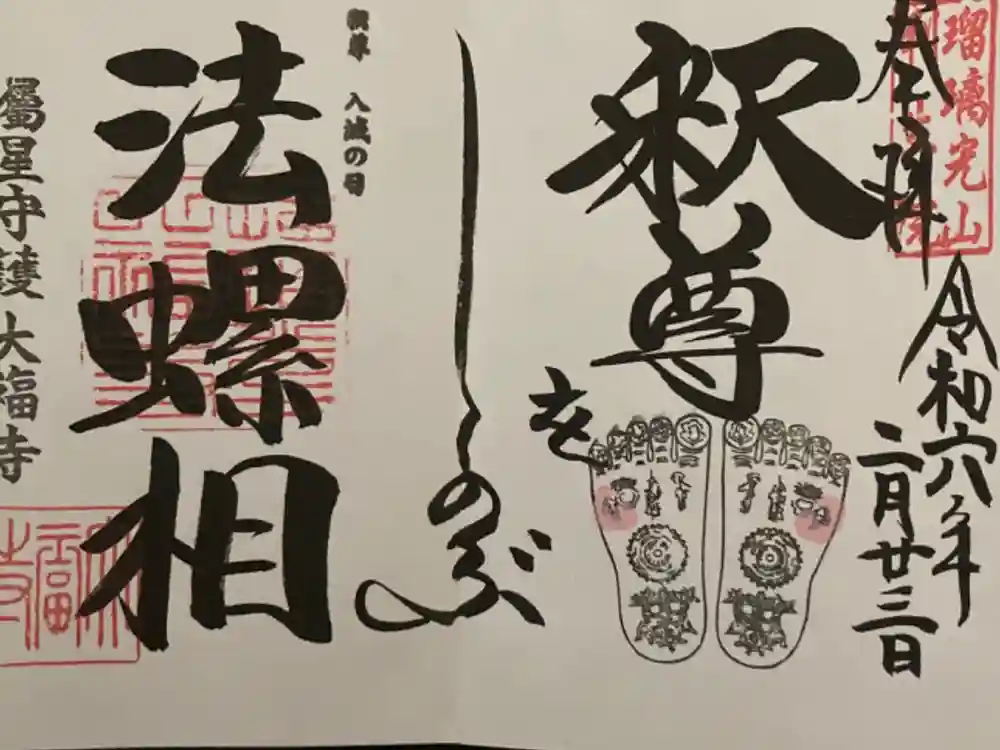 瑠璃光山
奉拝
令和六年
二月廿三日
釈尊
を
しのぶ
入滅の日
法螺相
屬星守護 大福寺